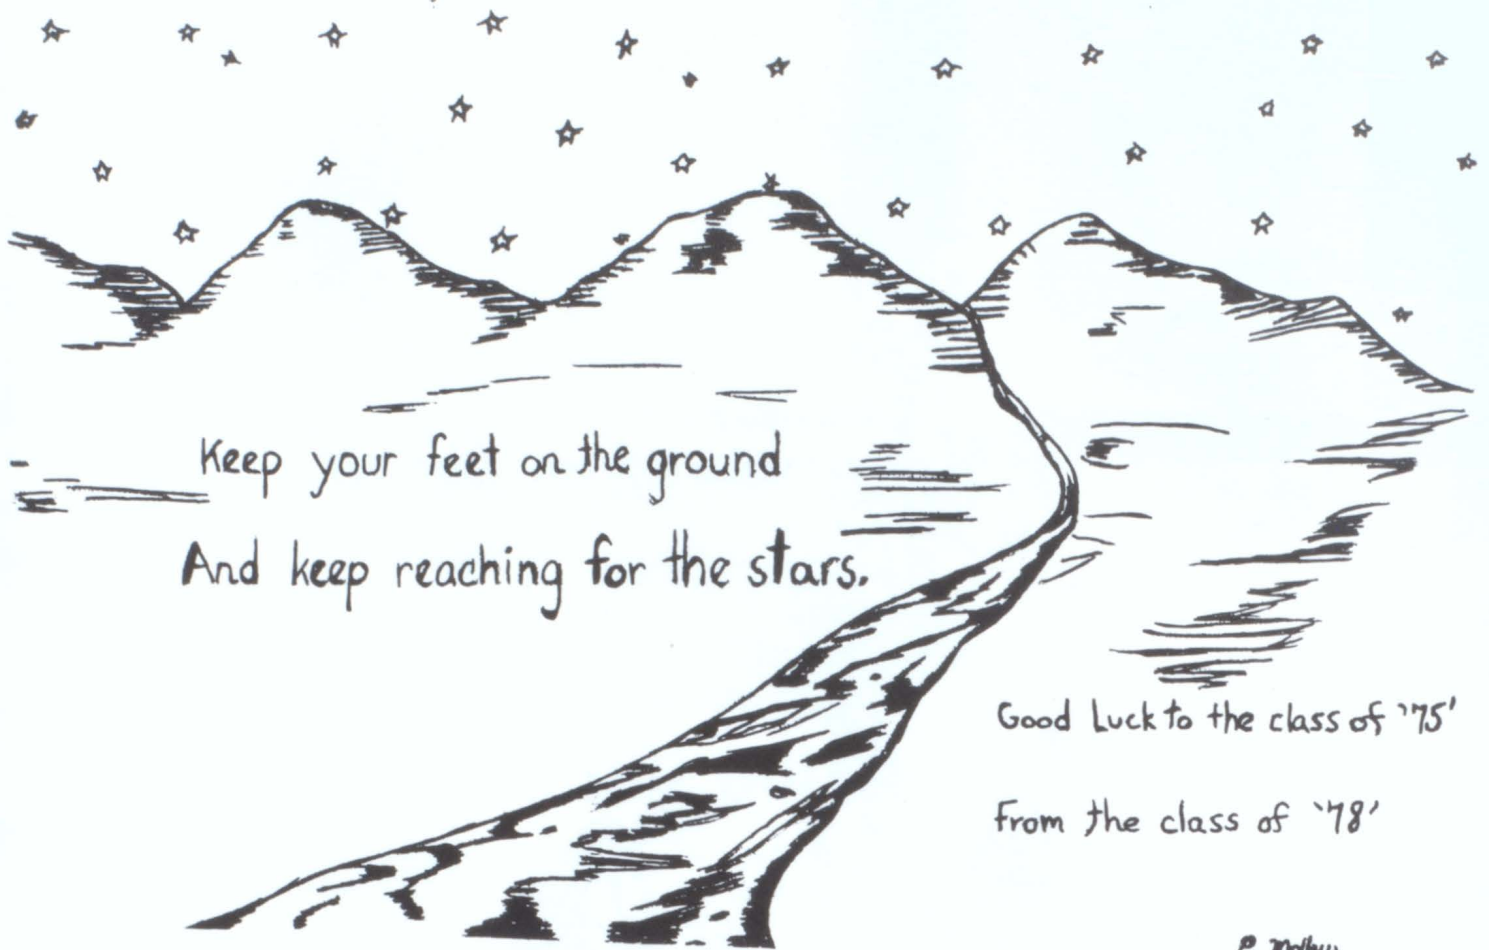 Keep your feet on the ground
And keep reaching for the stars.
Good Luck to the class of '75'
from the class of '78'